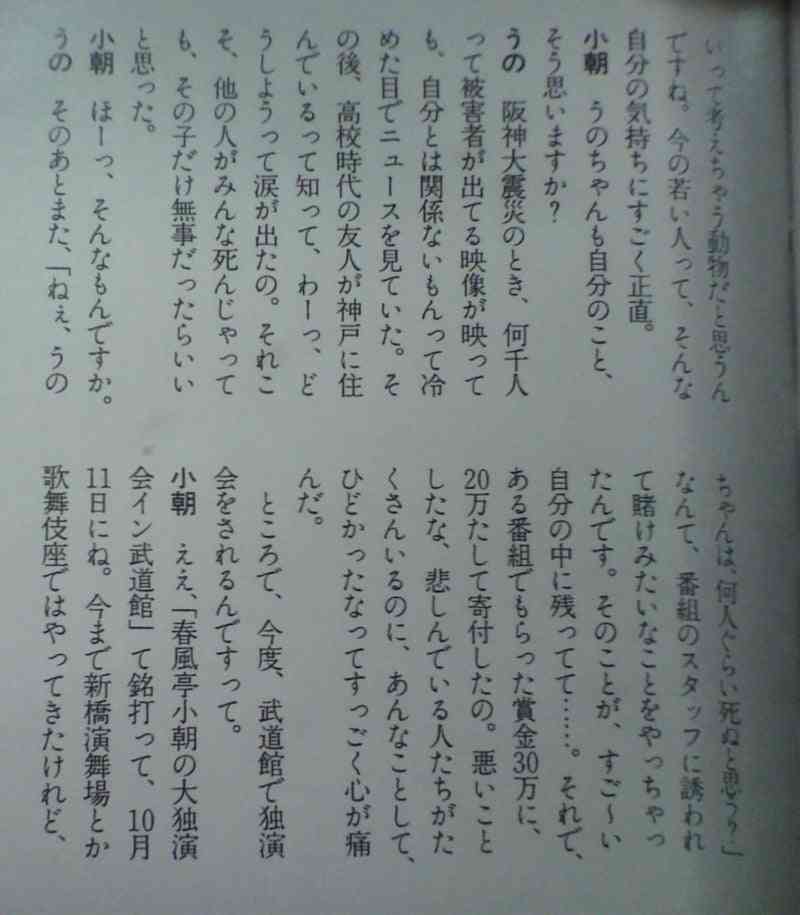 いって考えちゃう動物だと思うん
ですね。今の若い人って、そんな
自分の気持ちにすごく正直。
小朝　うのちゃんも自分のこと、
そう思いますか?
うの　阪神大震災のとき、何千人
って被害者が出てる映像が映って
も、自分とは関係ないもんって冷
めた目でニュースを見ていた。そ
の後、高校時代の友人が神戸に住
んでいるって知って、わーっ、ど
うしようって涙が出たの。それこ
そ、他の人がみんな死んじゃって
も、その子だけ無事だったらいい
と思った。
小朝　ほーっ、そんなもんですか。
うの　そのあとまた、「ねぇ、うの
ちゃんは、何人ぐらい死ぬと思う?」
なんて、番組のスタッフに誘われ
て賭けみたいなことをやっちゃっ
たんです。そのことが、すご〜い
自分の中に残ってて……。それで、
ある番組でもらった賞金30万に、
20万たして寄付したの。悪いこと
したな、悲しんでいる人たちがた
くさんいるのに、あんなことして、
ひどかったなってすっごく心が痛
んだ。
ところで、今度、武道館で独演
会をされるんですって。
小朝　ええ、「春風亭小朝の大独演
会イン武道館」て銘打って、10月
11日にね。今まで新橋演舞場とか
歌舞伎座ではやってきたけれど、